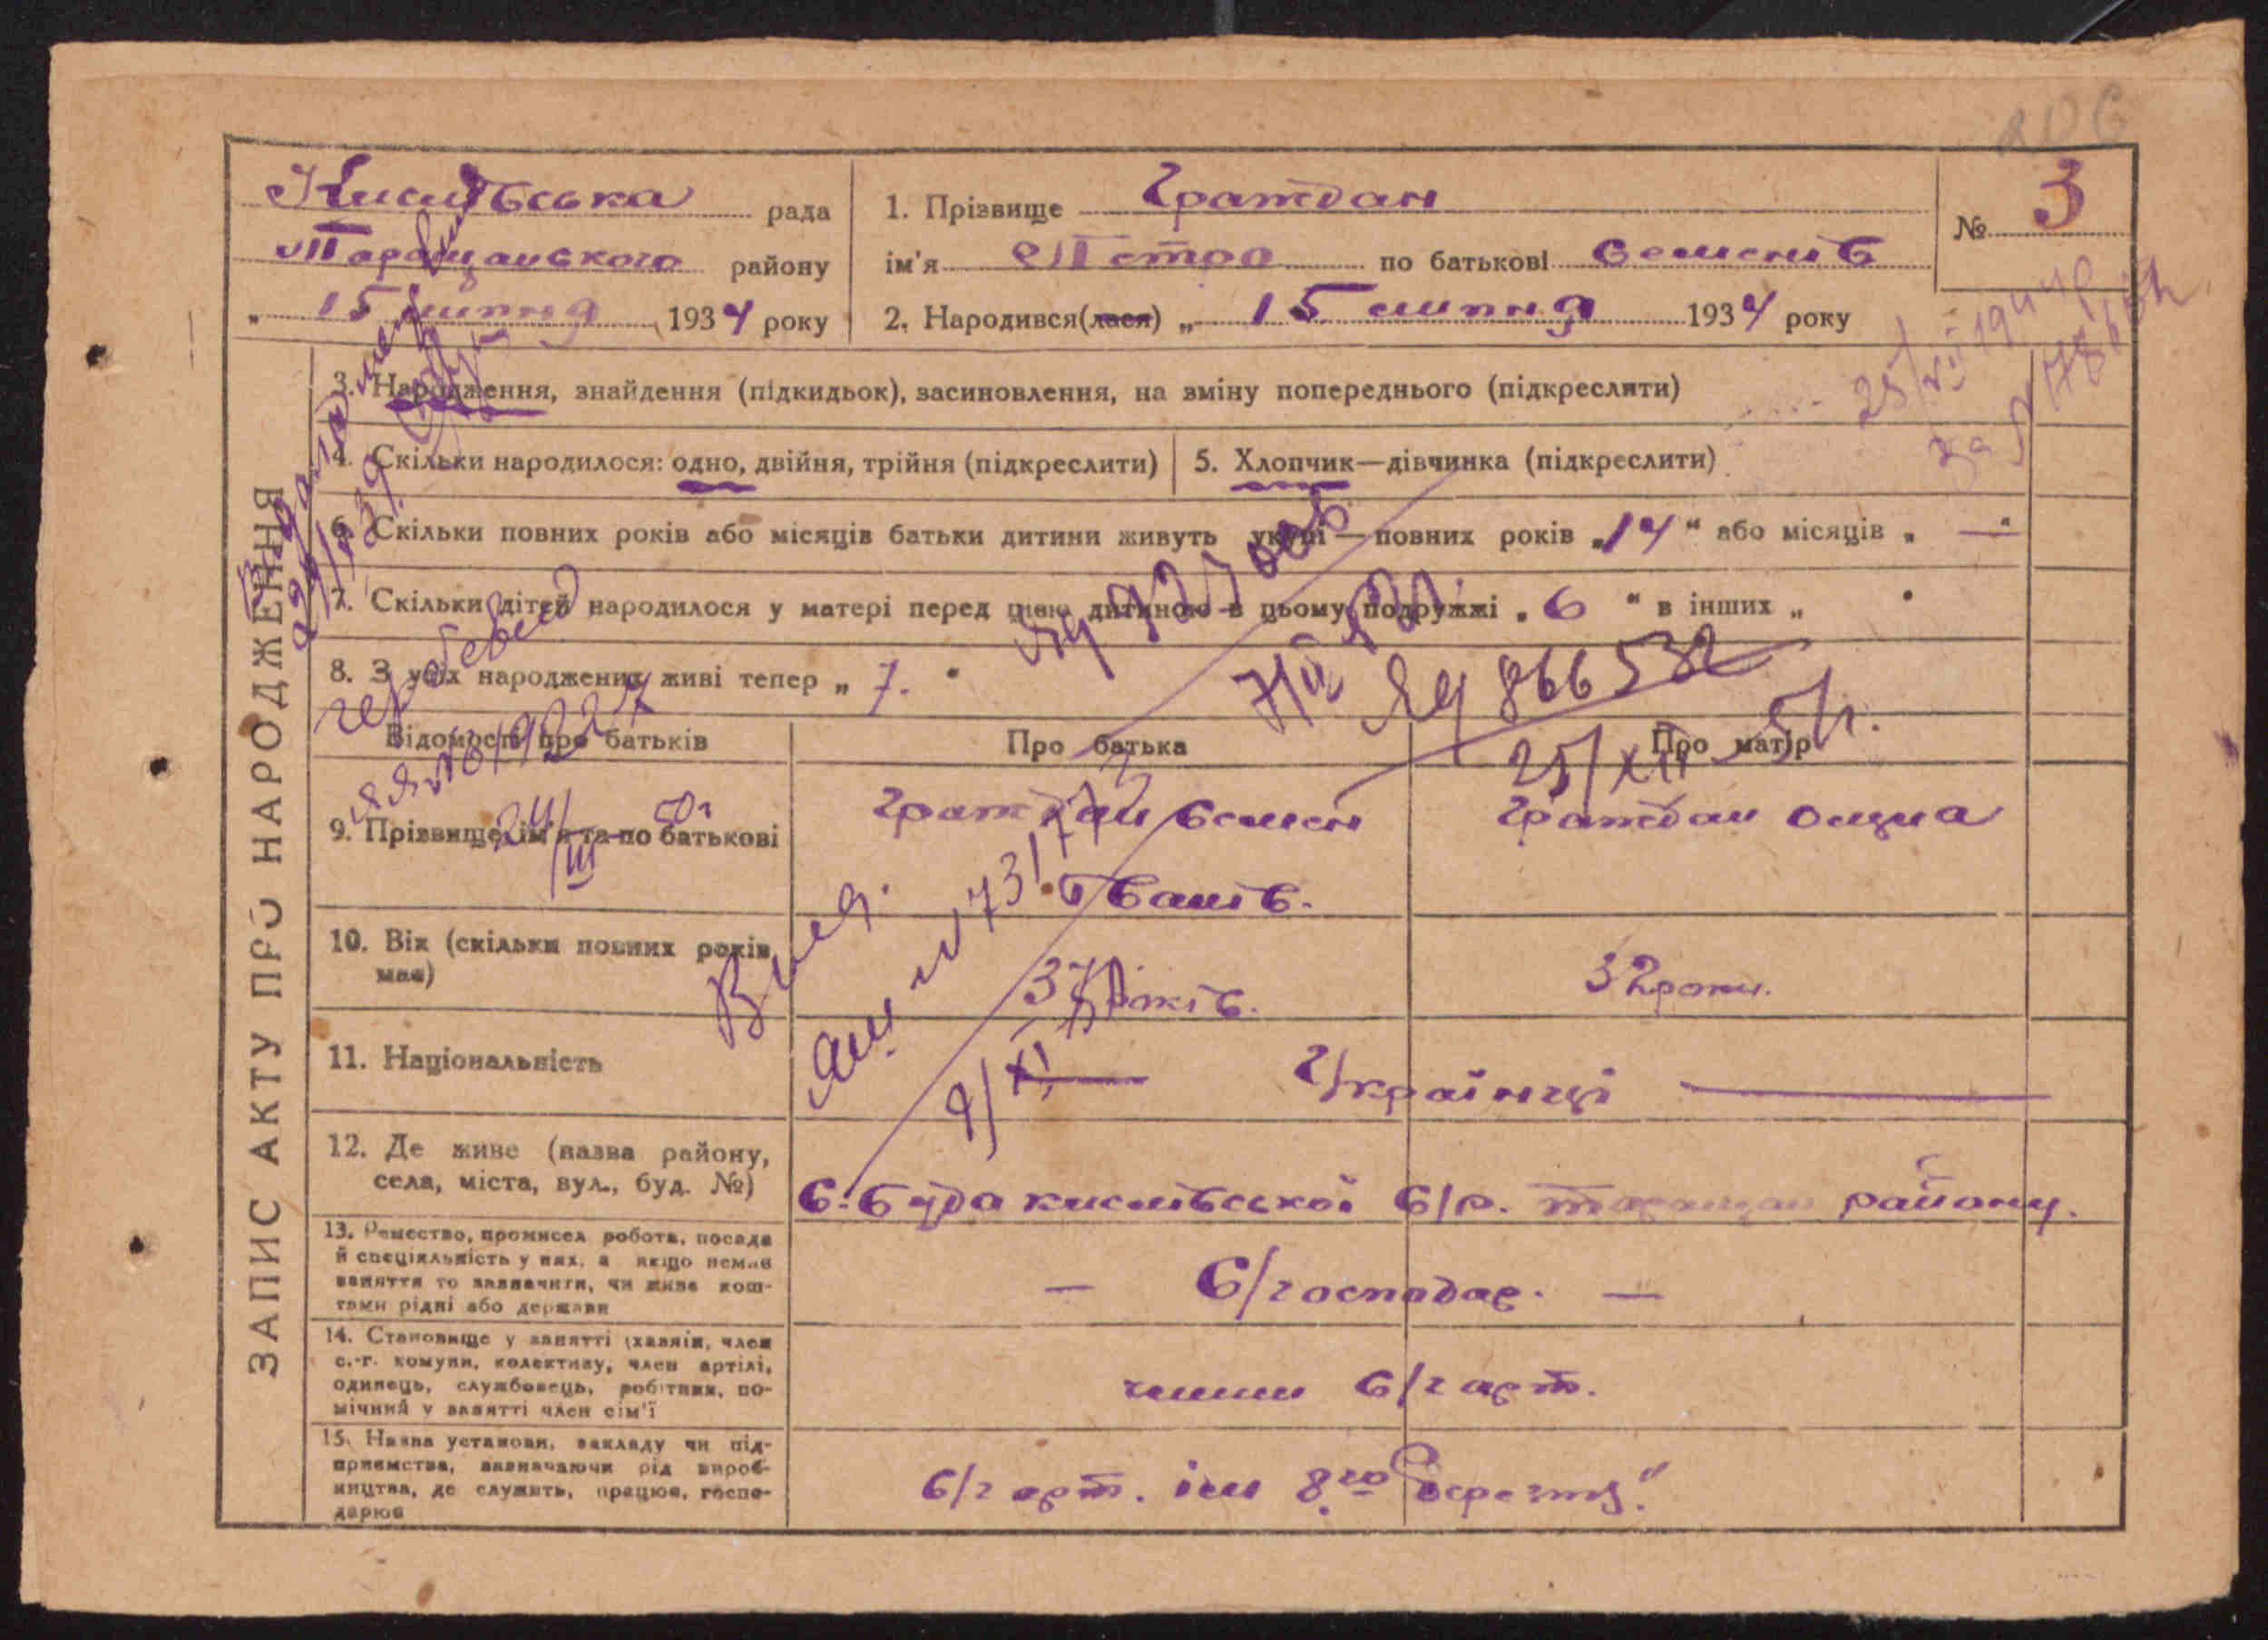 206
Кислівська рада
Таращанского району
„ 15 липня 1934 року
1. Прізвище Граждан
ім'я Петро по батькові Семенів
2. Народився(лася) „ 15 липня 1934 року
№ 3
25/VII 1944р
ЗАПИС АКТУ ПРО НАРОДЖЕННЯ
3. Народження, знайдення (підкидьок), засиновлення, на зміну попереднього (підкреслити)
4. Скільки народилося: одно, двійня, трійня (підкреслити)
5. Хлопчик—дівчинка (підкреслити)
6. Скільки повних років або місяців батьки дитини живуть укупі — повних років „14“ або місяців „ — “
7. Скільки дітей народилося у матері перед цією дитиною в цьому подружжі „ 6 “ в інших „ “
8. З усіх народжених живі тепер „ 7. “
ЯЧ 866532
25/XII 51г.
Відомості про батьків
Про батька
Про матір
9. Прізвище, ім'я та по батькові
Граждан Семен
Іванів.
Граждан
24/III 50г
10. Вік (скільки повних років має)
37 років.
32 роки.
11. Національність
Українці
12. Де живе (назва району,
села, міста, вул., буд. №)
с. Буда кислівської с/р. таращан району.
13. Ремество, промисел робота, посада
й спеціяльність у них, а якщо немає
заняття то зазначити, чи живе кош-
тами рідні або держави
— С/господар. —
14. Становище у занятті (хазяїн, член
с.-г. комуни, колективу, член артілі,
одинець, службовець, робітник, по-
мічний у занятті член сім'ї
члени с/г арт.
15. Назва установи, закладу чи під-
приємства, зазначаючи рід вироб-
ництва, де служить, працює, госпо-
дарює
с/г арт. ім 8го березня"